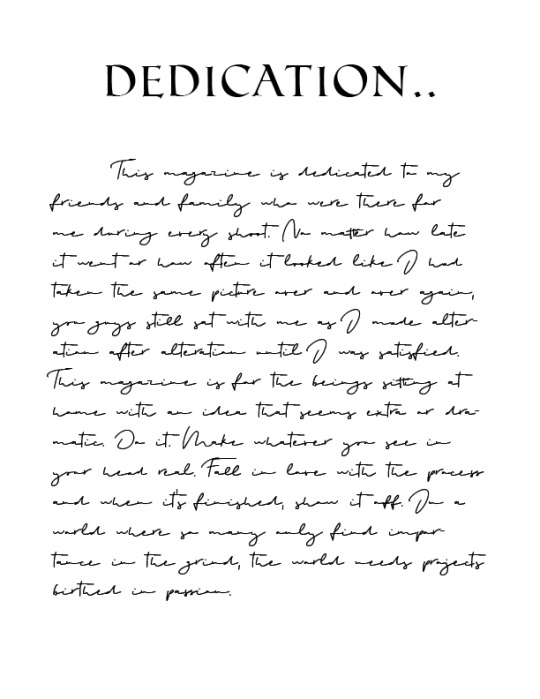 DEDICATION..
This magazine is dedicated to my
friends and family who were there for
me during every shoot. No matter how late
it went or how often it looked like I had
taken the same picture over and over again,
you guys still sat with me as I made alter-
ation after alteration until I was satisfied.
This magazine is for the beings sitting at
home with an idea that seems extra or dra-
matic. Do it. Make whatever you see in
your head real. Fall in love with the process
and when it's finished, show it off. In a
world where so many only find impor-
tance in the grind, the world needs projects
birthed in passion.